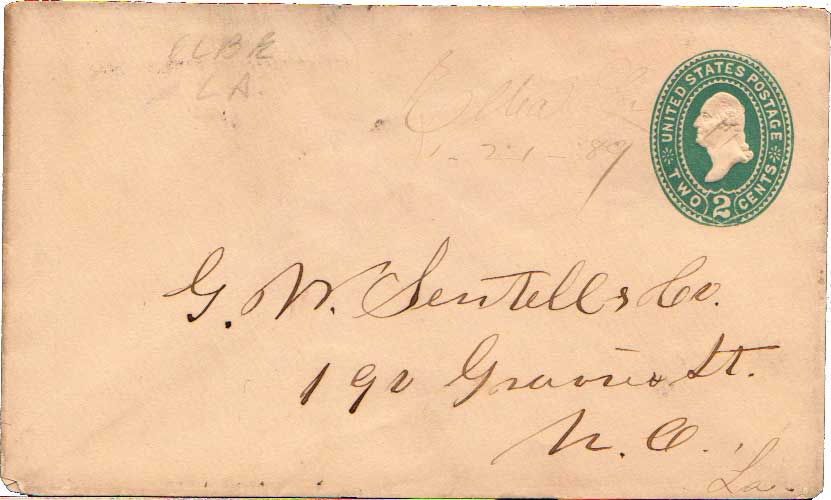 ELBA
LA.
Elba La
1-21-89
UNITED STATES POSTAGE
TWO 2 CENTS
G. W. Sentell & Co.
192 Gravier St.
N. O.
La